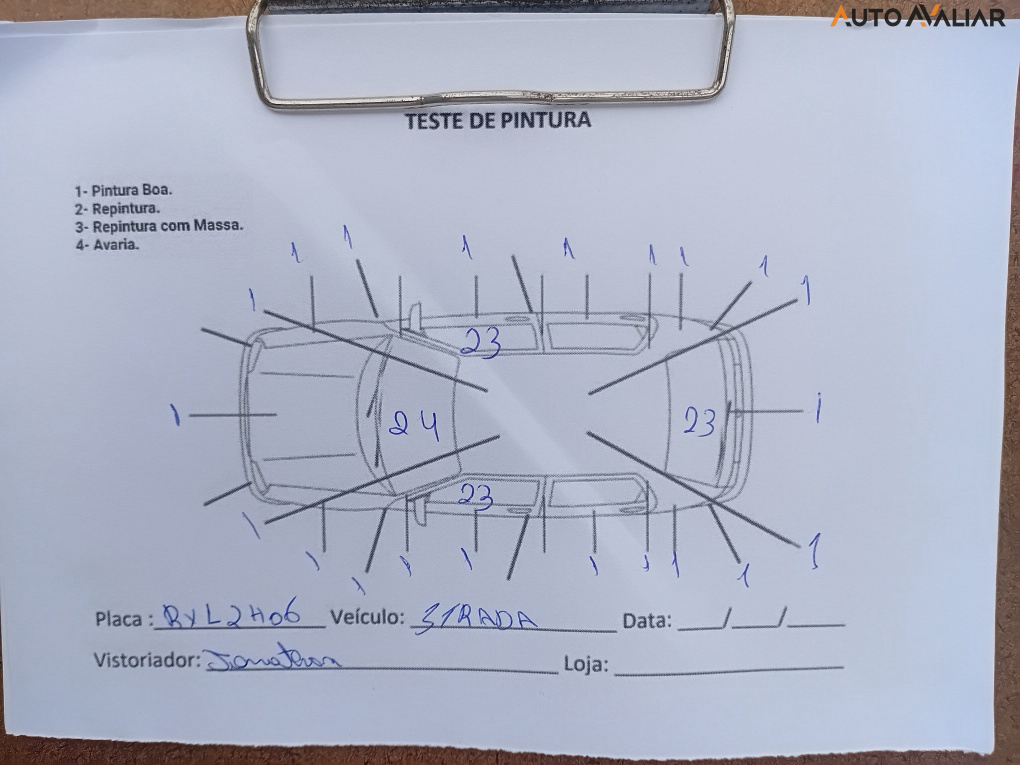 AUTO AVALIAR
TESTE DE PINTURA
1- Pintura Boa.
2- Repintura.
3- Repintura com Massa.
4- Avaria.
1 1 1 1 1 1 1
1 1
23
1 24 23 1
23
1 1
1 1 1 1 1 1 1 1
Placa : RYL2H06 Veículo: STRADA Data: __/__/__
Vistoriador: Jonatван Loja: